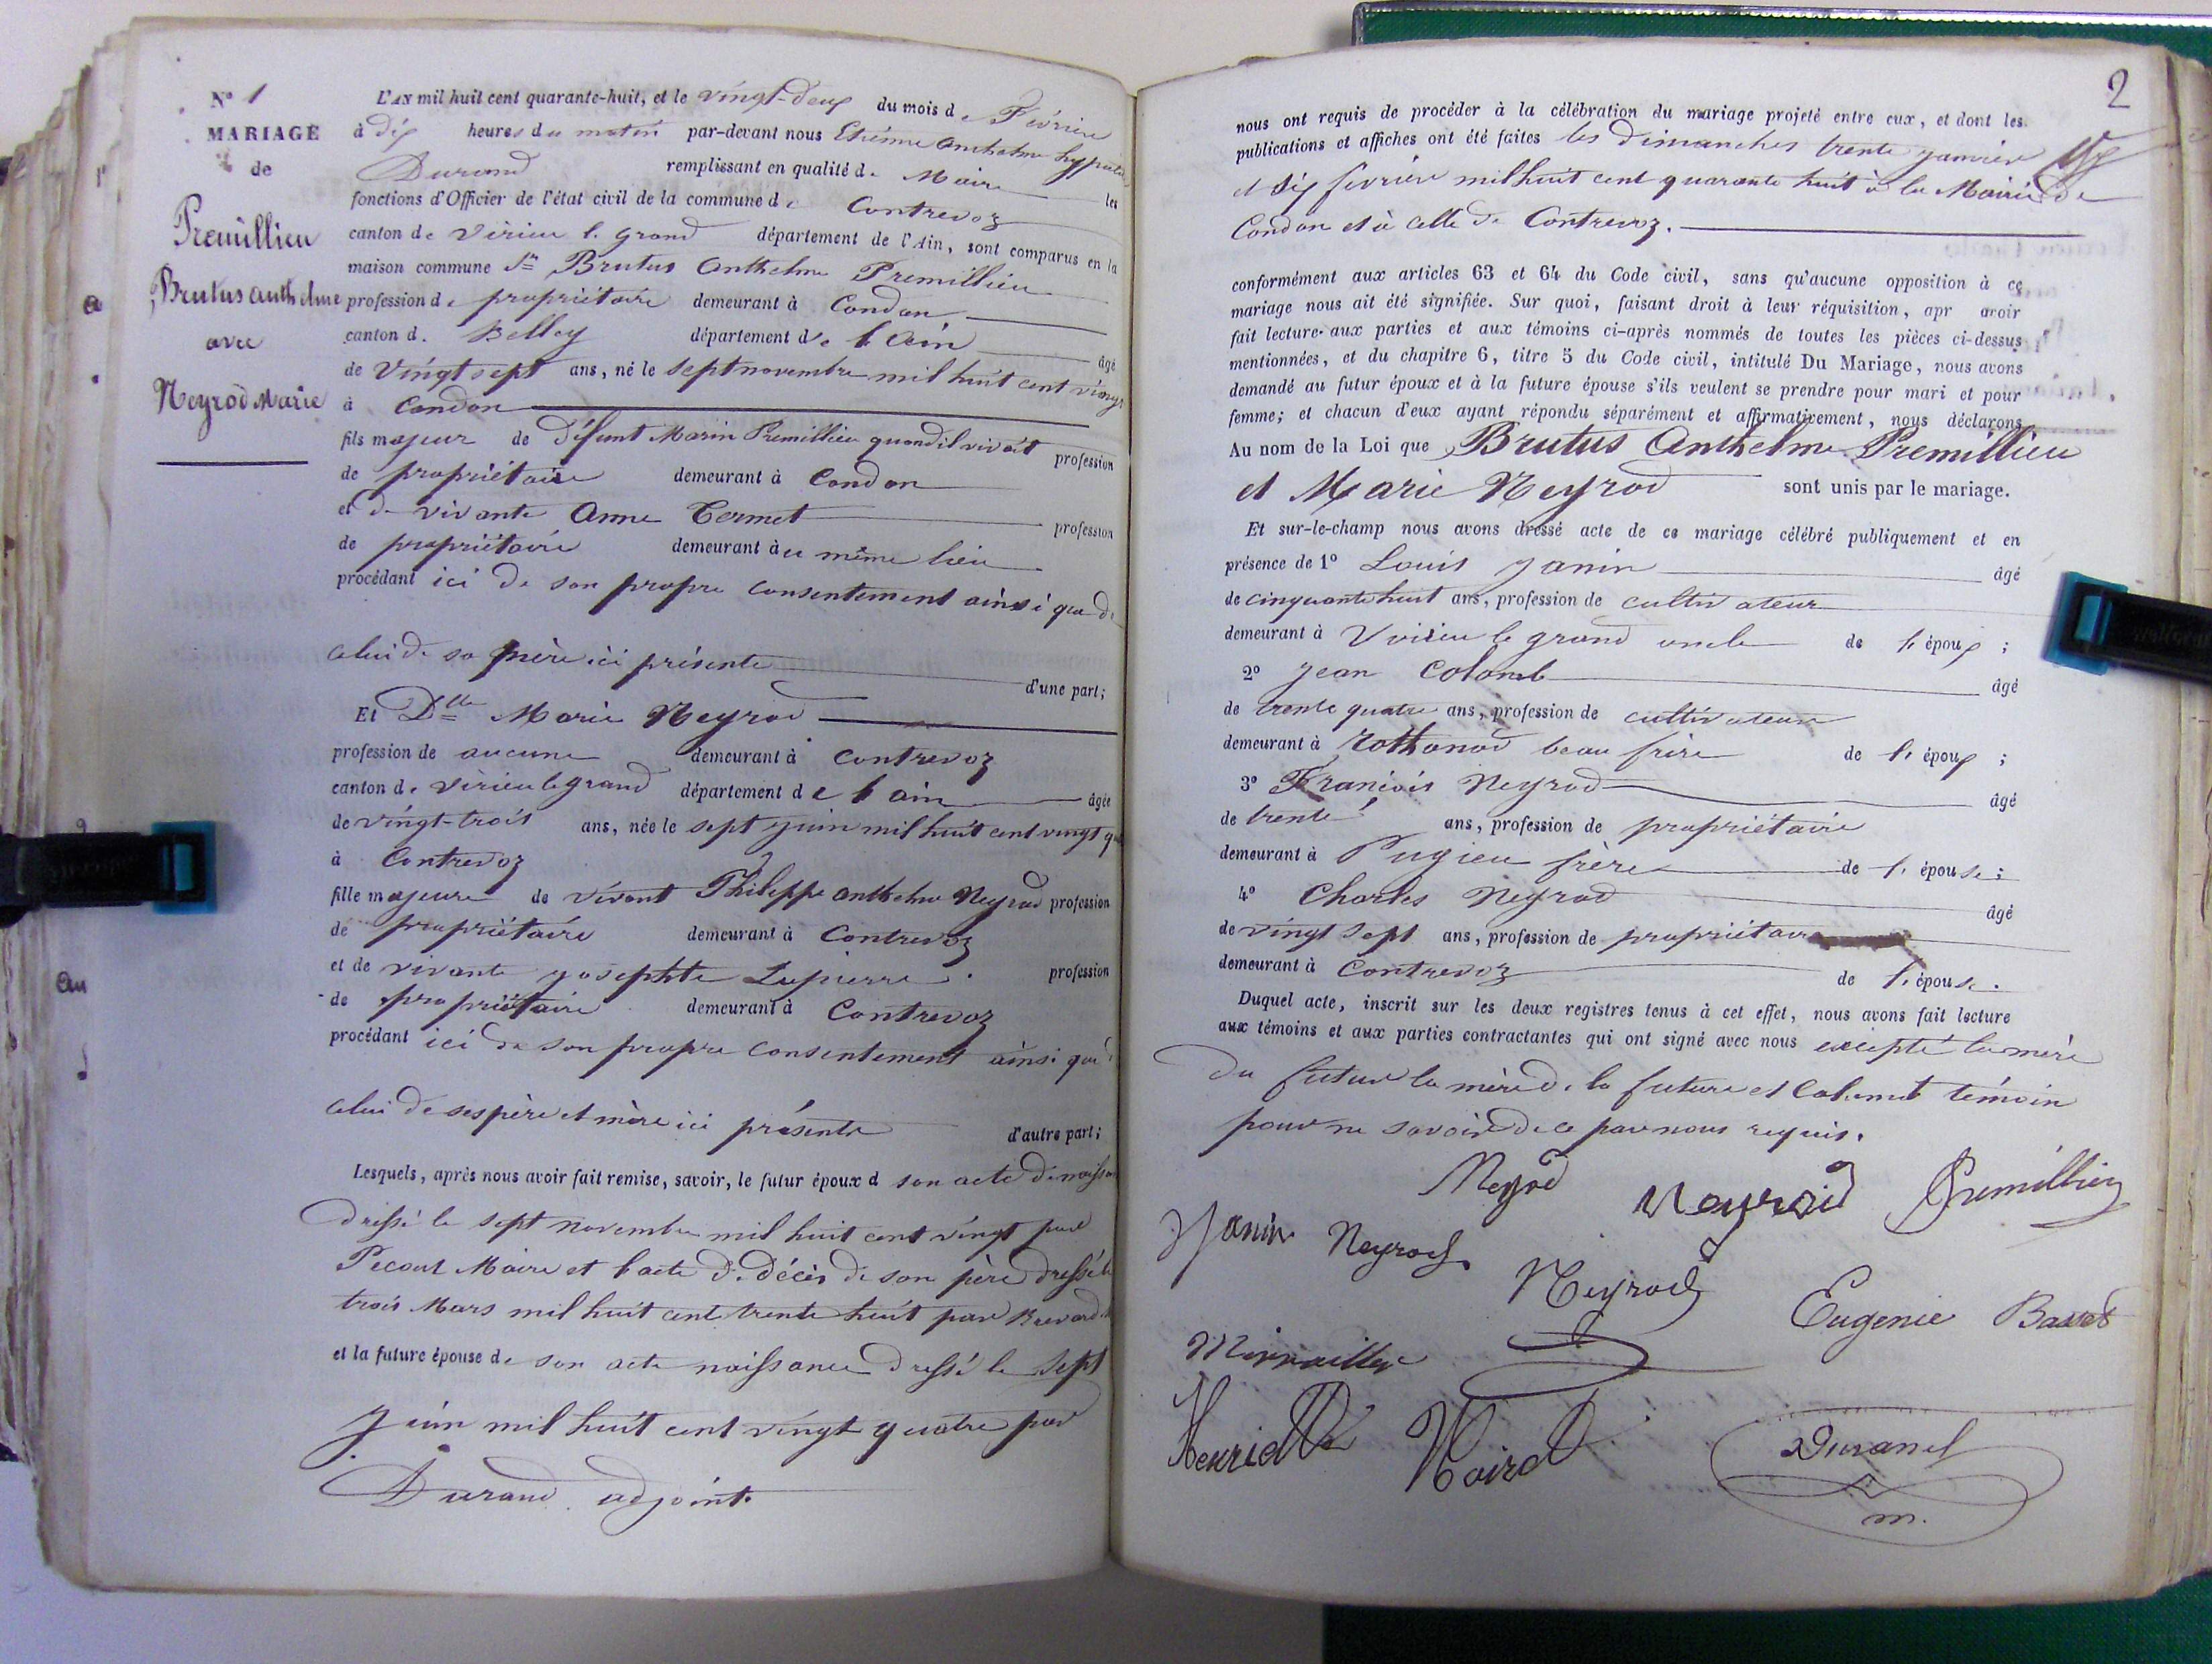 N° 1
MARIAGE
de
Premillieu
Brutus anthelme
avec
Neyrod Marie
L'AN mil huit cent quarante-huit, et le vingt-deux du mois de Février
à dix heures du matin par-devant nous Etienne Anthelme hyppolite
Durand remplissant en qualité de Maire les
fonctions d'Officier de l'état civil de la commune de Contrevoz
canton de Virieu le grand département de l'Ain, sont comparus en la
maison commune Sr Brutus Anthelme Premillieu
profession de propriétaire demeurant à Condon
canton d. Belley département de l'Ain âgé
de Vingt sept ans, né le sept novembre mil huit cent vingt
à Condon
fils majeur de défunt Marin Premillieu quand il vivait profession
de propriétaire demeurant à Condon
et de vivante Anne Termet profession
de propriétaire demeurant au même lieu
procédant ici de son propre consentement ainsi que de
celui de sa mère ici présente
d'une part;
Et Dlle Marie Neyrod
profession de aucune demeurant à Contrevoz
canton de Virieu le grand département de l'ain âgée
de vingt-trois ans, née le sept juin mil huit cent vingt
à Contrevoz
fille majeure de vivant Philippe anthelme Neyrod profession
de propriétaire demeurant à Contrevoz
et de vivante josephte Lapierre profession
de propriétaire demeurant à Contrevoz
procédant ici de son propre consentement ainsi que
celui de ses père et mère ici présente
d'autre part;
Lesquels, après nous avoir fait remise, savoir, le futur époux d son acte de
dressé le sept novembre mil huit cent vingt par
Pecout Maire et l'acte de décès de son père dressé le
trois Mars mil huit cent trente huit par
et la future épouse de son acte naissance dressé le sept
juin mil huit cent vingt quatre par
Durand adjoint.
2
nous ont requis de procéder à la célébration du mariage projeté entre eux, et dont les
publications et affiches ont été faites les dimanches trente janvier
et six février mil huit cent quarante huit à la Mairie de
Condon et à celle de Contrevoz.
conformément aux articles 63 et 64 du Code civil, sans qu'aucune opposition à ce
mariage nous ait été signifiée. Sur quoi, faisant droit à leur réquisition, apr avoir
fait lecture aux parties et aux témoins ci-après nommés de toutes les pièces ci-dessus
mentionnées, et du chapitre 6, titre 5 du Code civil, intitulé Du Mariage, nous avons
demandé au futur époux et à la future épouse s'ils veulent se prendre pour mari et pour
femme; et chacun d'eux ayant répondu séparément et affirmativement, nous déclarons
Au nom de la Loi que Brutus Anthelme Premillieu
et Marie Neyrod sont unis par le mariage.
Et sur-le-champ nous avons dressé acte de ce mariage célébré publiquement et en
présence de 1° Louis Janin âgé
de cinquante huit ans, profession de cultivateur
demeurant à Virieu le grand oncle de l'époux ;
2° Jean Colomb âgé
de trente quatre ans, profession de cultivateur
demeurant à Rothonod beau frère de l'époux ;
3° François Neyrod âgé
de trente ans, profession de propriétaire
demeurant à Pugieu frère de l'épouse ;
4° Charles Neyrod âgé
de vingt sept ans, profession de propriétaire
demeurant à Contrevoz de l'épouse.
Duquel acte, inscrit sur les deux registres tenus à cet effet, nous avons fait lecture
aux témoins et aux parties contractantes qui ont signé avec nous excepté la mère
du futur la mère de la future et Colomb témoin
pour ne savoir de ce par nous requis.
Neyrod Neyroud Premillieu
Janin Neyrod
Neyrod Eugenie Basset
Henriette Noirod
Durand
m.